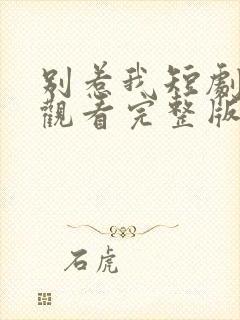 别惹我短劇
觀看完整版
石虎